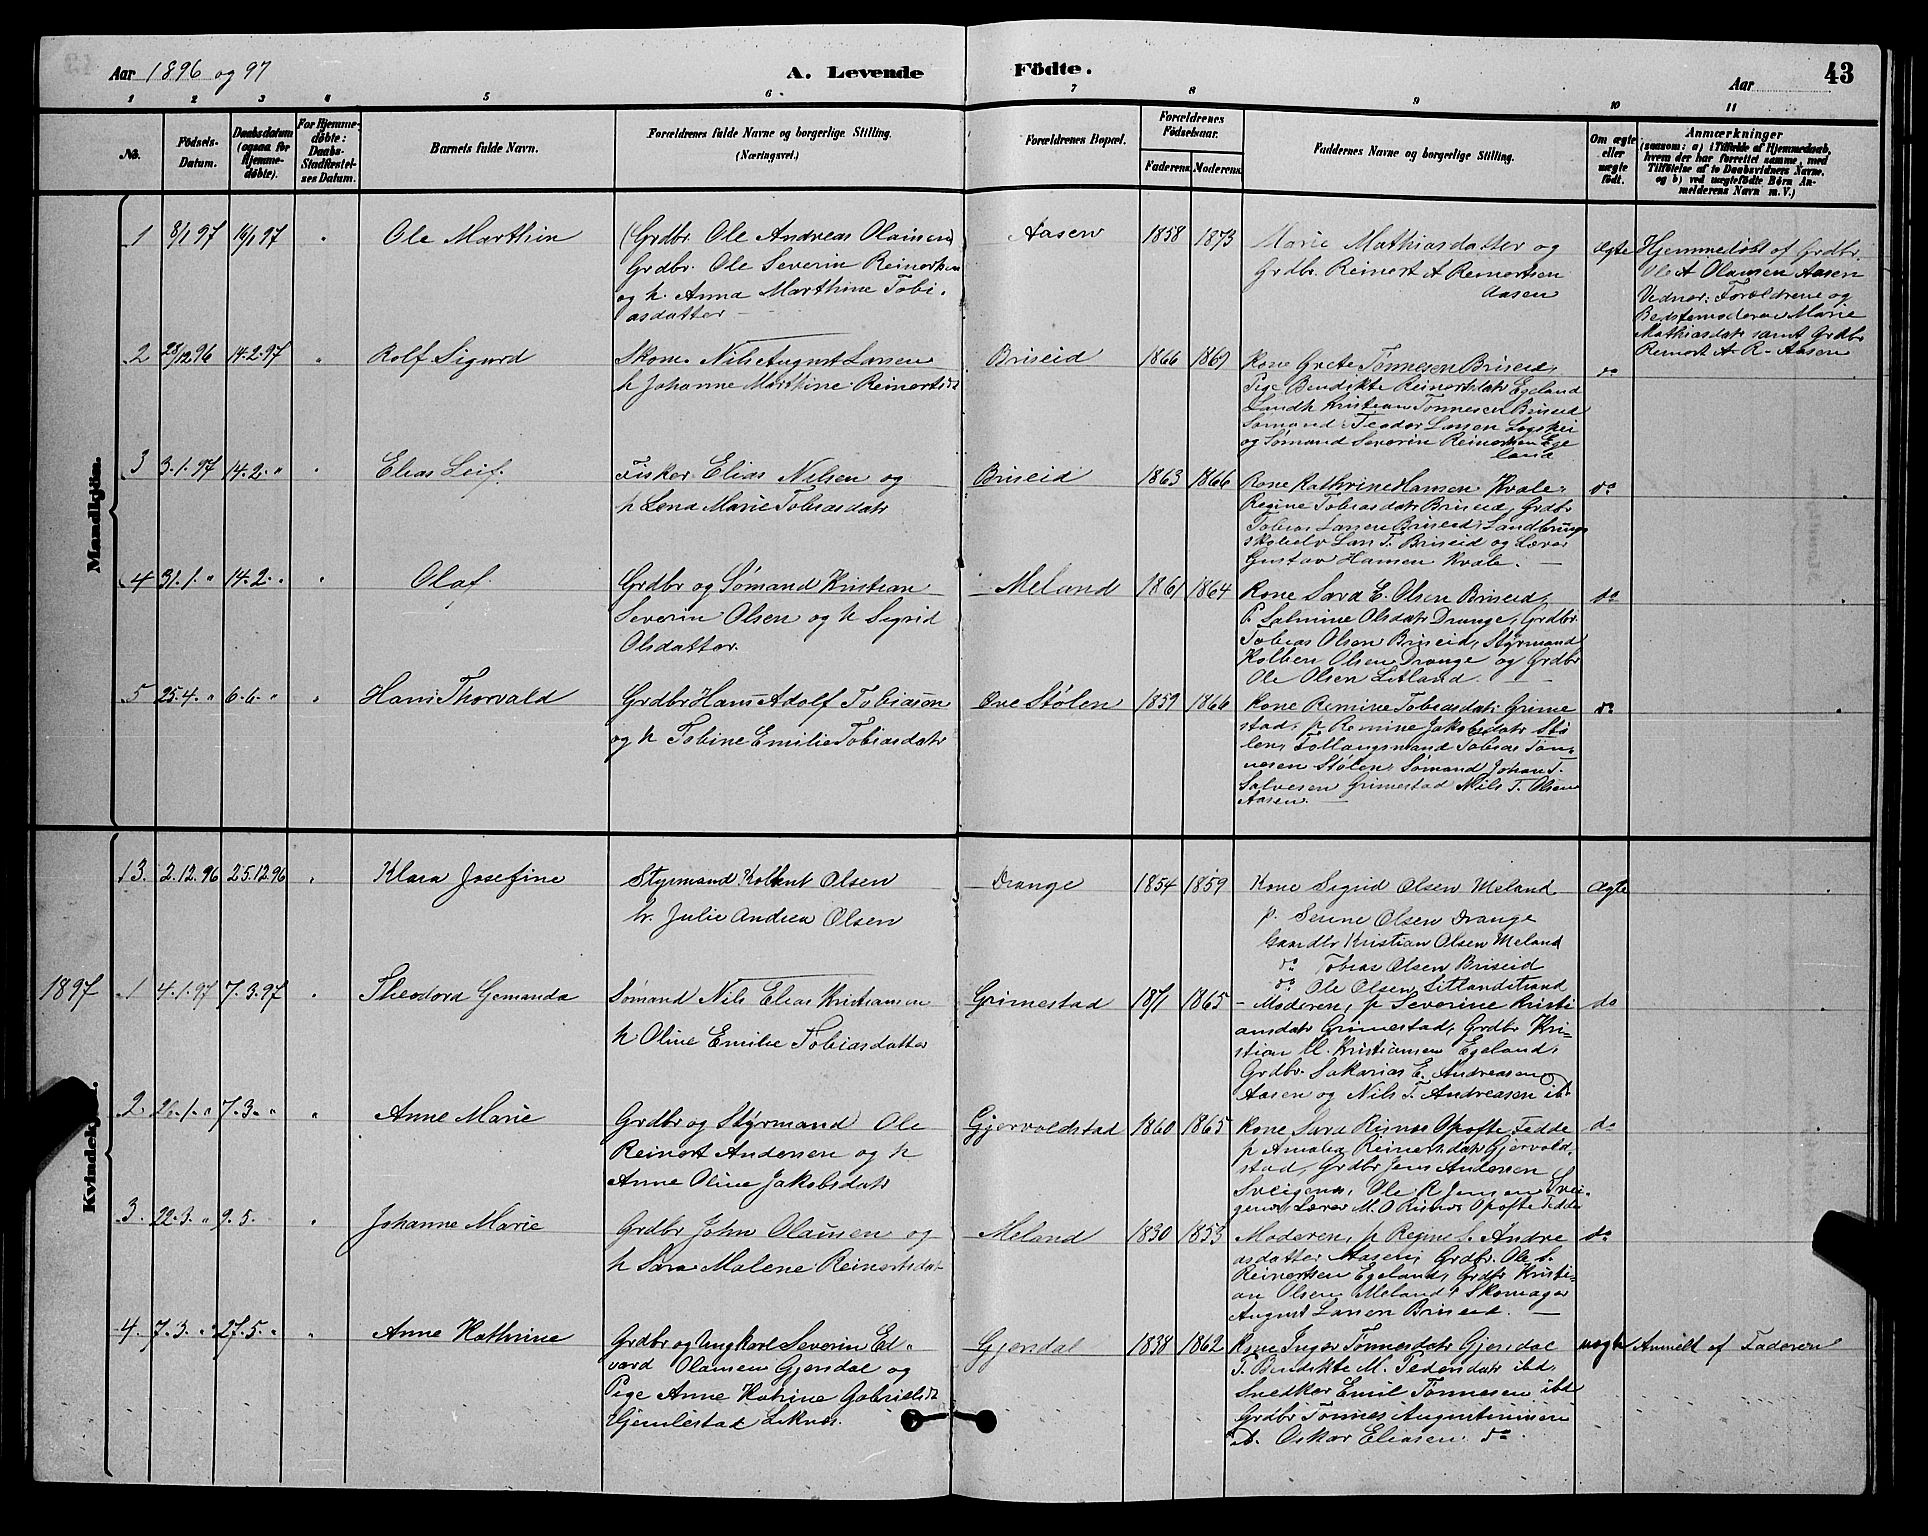 Aar 1896 og 97
A. Levende Födte.
Aar
43
1 2 3 4 5 6 7 8 9 10 11
No.
Födsels-Datum.
Daabsdatum (ogsaa for Hjemme-döbte).
For Hjemme-döbte: Daabs-Stadfæstel-ses Datum.
Barnets fulde Navn.
Forældrenes fulde Navne og borgerlige Stilling. (Næringsvei.)
Forældrenes Bopæl.
Forældrenes Födselsaar.
Faderens. Moderens.
Faddernes Navne og borgerlige Stilling.
Om ægte eller uægte födt.
Anmærkninger
(saasom: a) i Tilfælde af Hjemmedaab, hvem der har forrettet samme, med Tilföielse af to Daabsvidners Navne, og b) ved uægtefödte Börn An-melderens Navn m. V.)
Mandkjön.
1 8/1 97 16/1 97 " Ole Marthin
(Grdbr. Ole Andreas Olausen)
Grdbr. Ole Severin Reinertsen
og h. Anna Marthine Tobi-
asdatter
Aasen 1858 1873
Marie Mathiasdatter og
Grdbr. Reinert A Reinertsen
Aasen
ægte
Hjemmedøbt af Grdbr.
Ole A Olausen Aasen
Vidner: Forældrene og
Bedstemoderen Marie
Mathiasdatr samt Grdbr
Reinert A. R. Aasen
2 28/12 96 14.2.97 " Rolf Sigurd
Skom. Nils August Larsen
h Johanne Marthine Reinertsdt
Briseid 1866 1869
Kone Grete Tønnesen Briseid,
Pige Bendikte Reinertsdatr Egeland
Landh Kristian Tønnesen Briseid
Sømand Teodor Larsen
og Sømand Severin Reinertsen Ege
land
do
3 3.1.97 14.2." " Elias Leif.
Fisker Elias Nilsen og
h Lena Marie Tobiasdatr
Briseid 1863 1866
Kone Kathrine Hansen Kvale
Regine Tobiasdatr Briseid, Grdbr
Tobias Larsen Briseid, Landbrugs
skoleelv Lars T. Briseid og Lærer
Gustav Hansen Kvale.
do
4 31.1." 14.2." " Olaf
Grdbr og Sømand Kristian
Severin Olsen og h Sigrid
Olsdatter.
Meland 1861 1864
Kone Sara E. Olsen Briseid,
P. Salmine Olsdatr Drange, Grdbr.
Tobias Olsen Briseid, Styrmand
Kolben Olsen Drange og Grdbr
Ole Olsen Litland.
do
5 25.4." 6.6." " Hans Thorvald
Grdbr Hans Adolf Tobiason
og h Tobine Emilie Tobiasdatr
Øvre Stølen 1859 1866
Kone Remine Tobiasdatr Grime
stad, p Remine Jakobsdatr Stø
len, Tobias Tøn-
nesen Stølen, Sømand Johan T.
Salvesen Grimestad Nils T. Olsen
Aasen.
do
Kvindekjön.
13. 2.12.96 25.12.96 " Klara Josefine
Styrmand Kolbent Olsen
h. Julie Andrea Olsen
Drange 1854 1859
Kone Sigrid Olsen Meland
p. Serine Olsen Drange
Gaardbr Kristian Olsen Meland
do Tobias Olsen Briseid
do Ole Olsen Litlandstrand
ægte
1897
1 4.1.97 7.3.97 " Theodora Gemanda
Sømand Nils Elias Kristiansen
h Oline Emilie Tobiasdatter
Grimestad 1871 1865
Moderen, p Severine Kristi
ansdatr Grimestad, Grdbr Kri-
stian M. Kristiansen Egeland,
Grdbr. Sakarias E. Andreasen
Aasen og Nils T. Andreasen ibd
do
2 26.1." 7.3." " Anne Marie
Grdbr og Styrmand Ole
Reinert Andersen og h
Anne Oline Jakobsdatr
Gjervoldstad 1860 1865
Kone Sara Risnes Opofte Fedde
p Amalia Reinertsdatr Gjervold
stad, Grdbr Jens Andersen
Sveigenes, Ole R Jensen Svei-
genes, Lærer M. O Risnes Opofte Fedde
do
3. 22.3." 9.5. " Johanne Marie
Grdbr John Olausen og
h Sara Malene Reinertsdat
Meland 1830 1853
Moderen, p Regine S. Andre
asdatter Aasen, Grdbr. Ole S.
Reinertsen Egeland, Grdbr Kristi-
an Olsen Meland, Skomager
August Larsen Briseid.
do
4. 7.3." 27.5." " Anne Kathrine
Grdbr og Ungkarl Severin Ed-
vard Olausen Gjersdal og
Pige Anne Katrine Gabrielsdt
Gjemlestad Liknes.
Gjersdal 1838 1862
Kone Inger Tønnesdatr Gjersdal
P. Bendikte M. Pedersdatr ibd,
Snedker Emil Tønnesen ibd
Grdbr Tønnes Augustinusen
ib. Oskar Eliasen do.
uægte
Anmeldt af Faderen